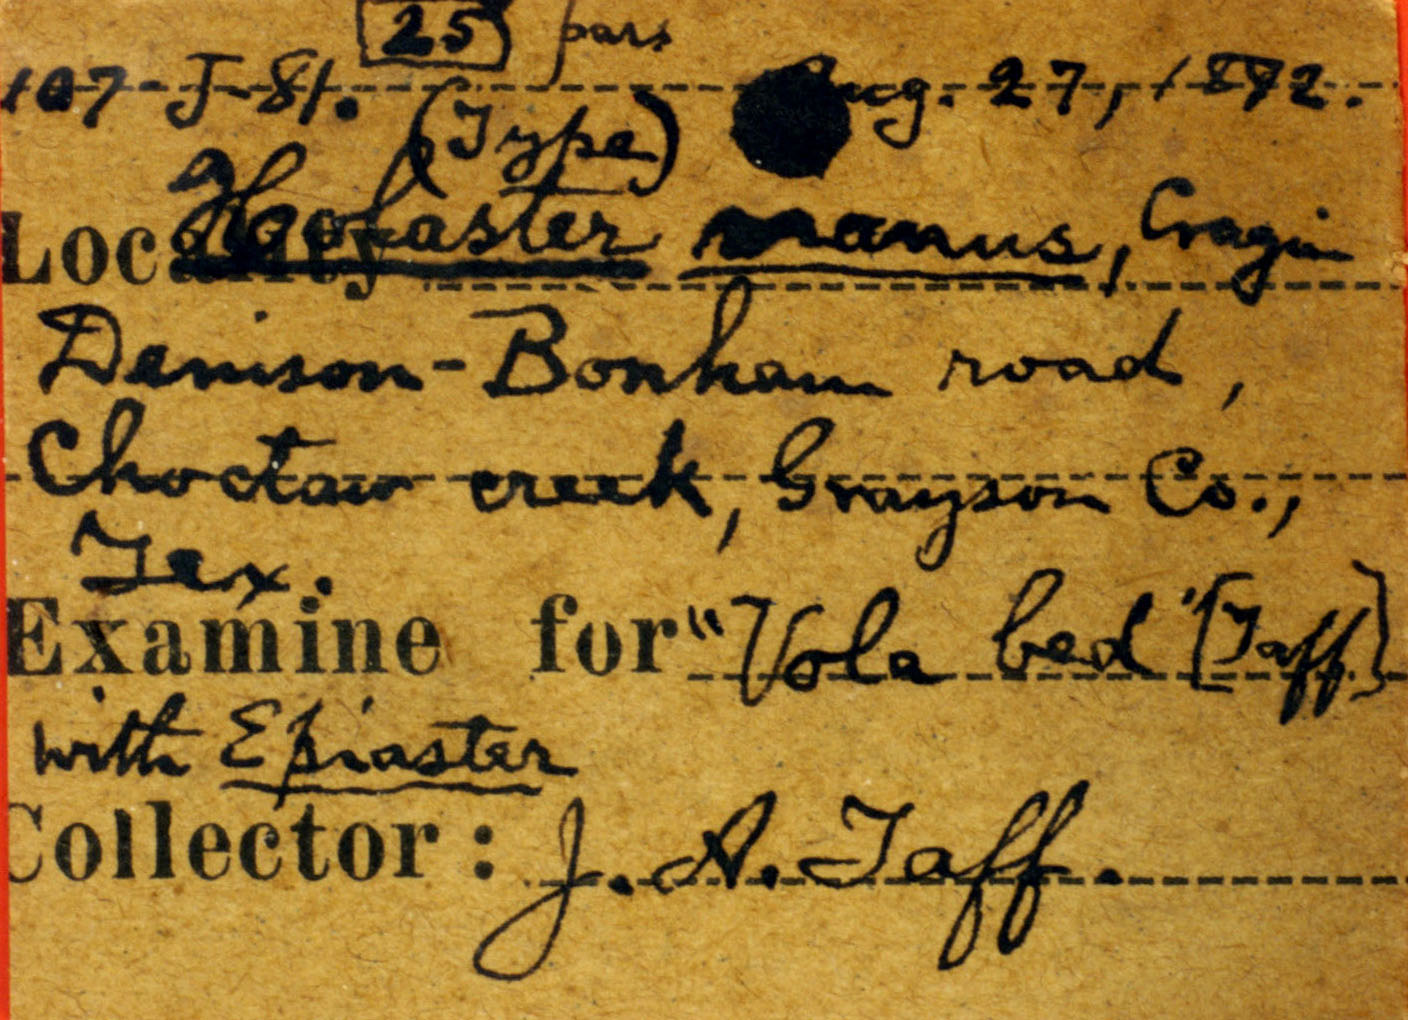 25 pars
107-J-81. Aug. 27, 1892.
(Type)
Locality Holaster nanus, Cragin
Denison-Bonham road,
Choctaw creek, Grayson Co.,
Tex.
Examine for "Vola bed" [Taff]
with Epiaster
Collector: J. A. Taff.